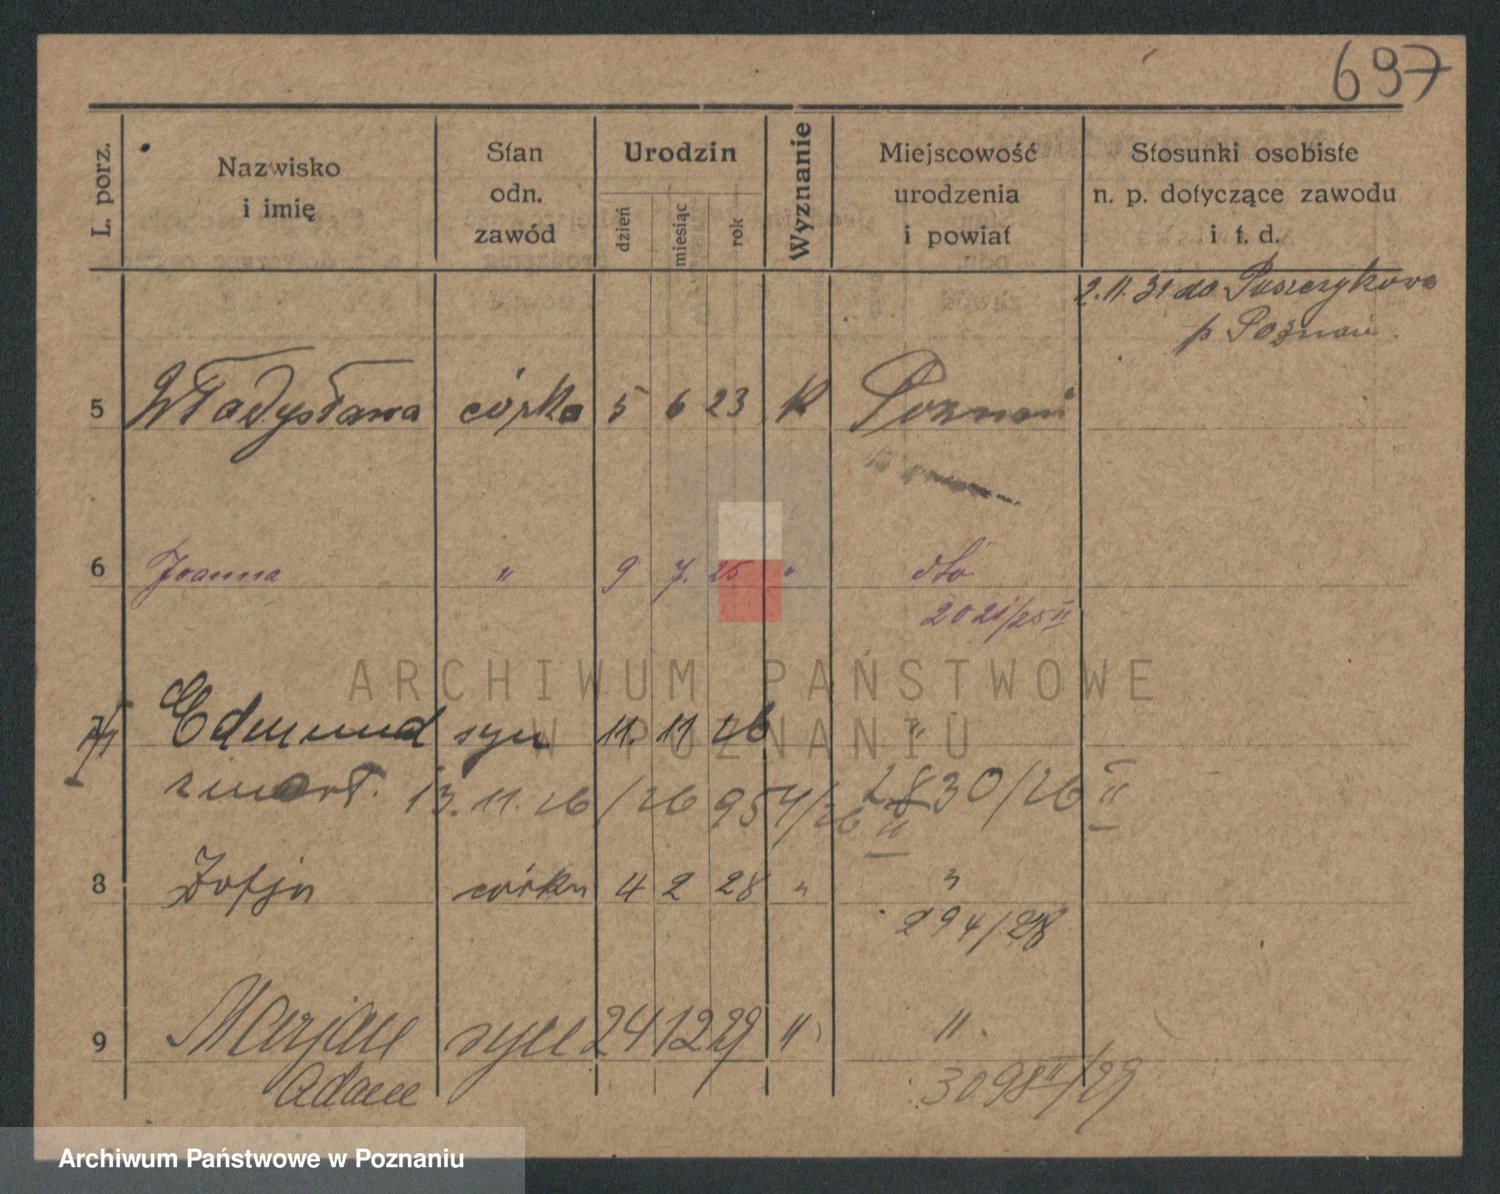 697
L. porz.
Nazwisko
i imię
Stan
odn.
zawód
Urodzin
dzień
miesiąc
rok
Wyznanie
Miejscowość
urodzenia
i powiat
Stosunki osobiste
n. p. dotyczące zawodu
i t. d.
2.11.31 do Puszczykowa
p Poznań
5 Władysława córka 5 6 23 K Poznań
6 Joanna " 9 7. 25 " dto
2021/25 II
7 Edmund syn 11. 11 26 "
zmart. 13.11.26 /26 954/26 II 2830/26 II
8 Zofja córka 4 2 28 " "
294/28
9 Marjan syn 24 12 29 " "
Adam
3098 II/29
ARCHIWUM PAŃSTWOWE
W POZNANIU
Archiwum Państwowe w Poznaniu